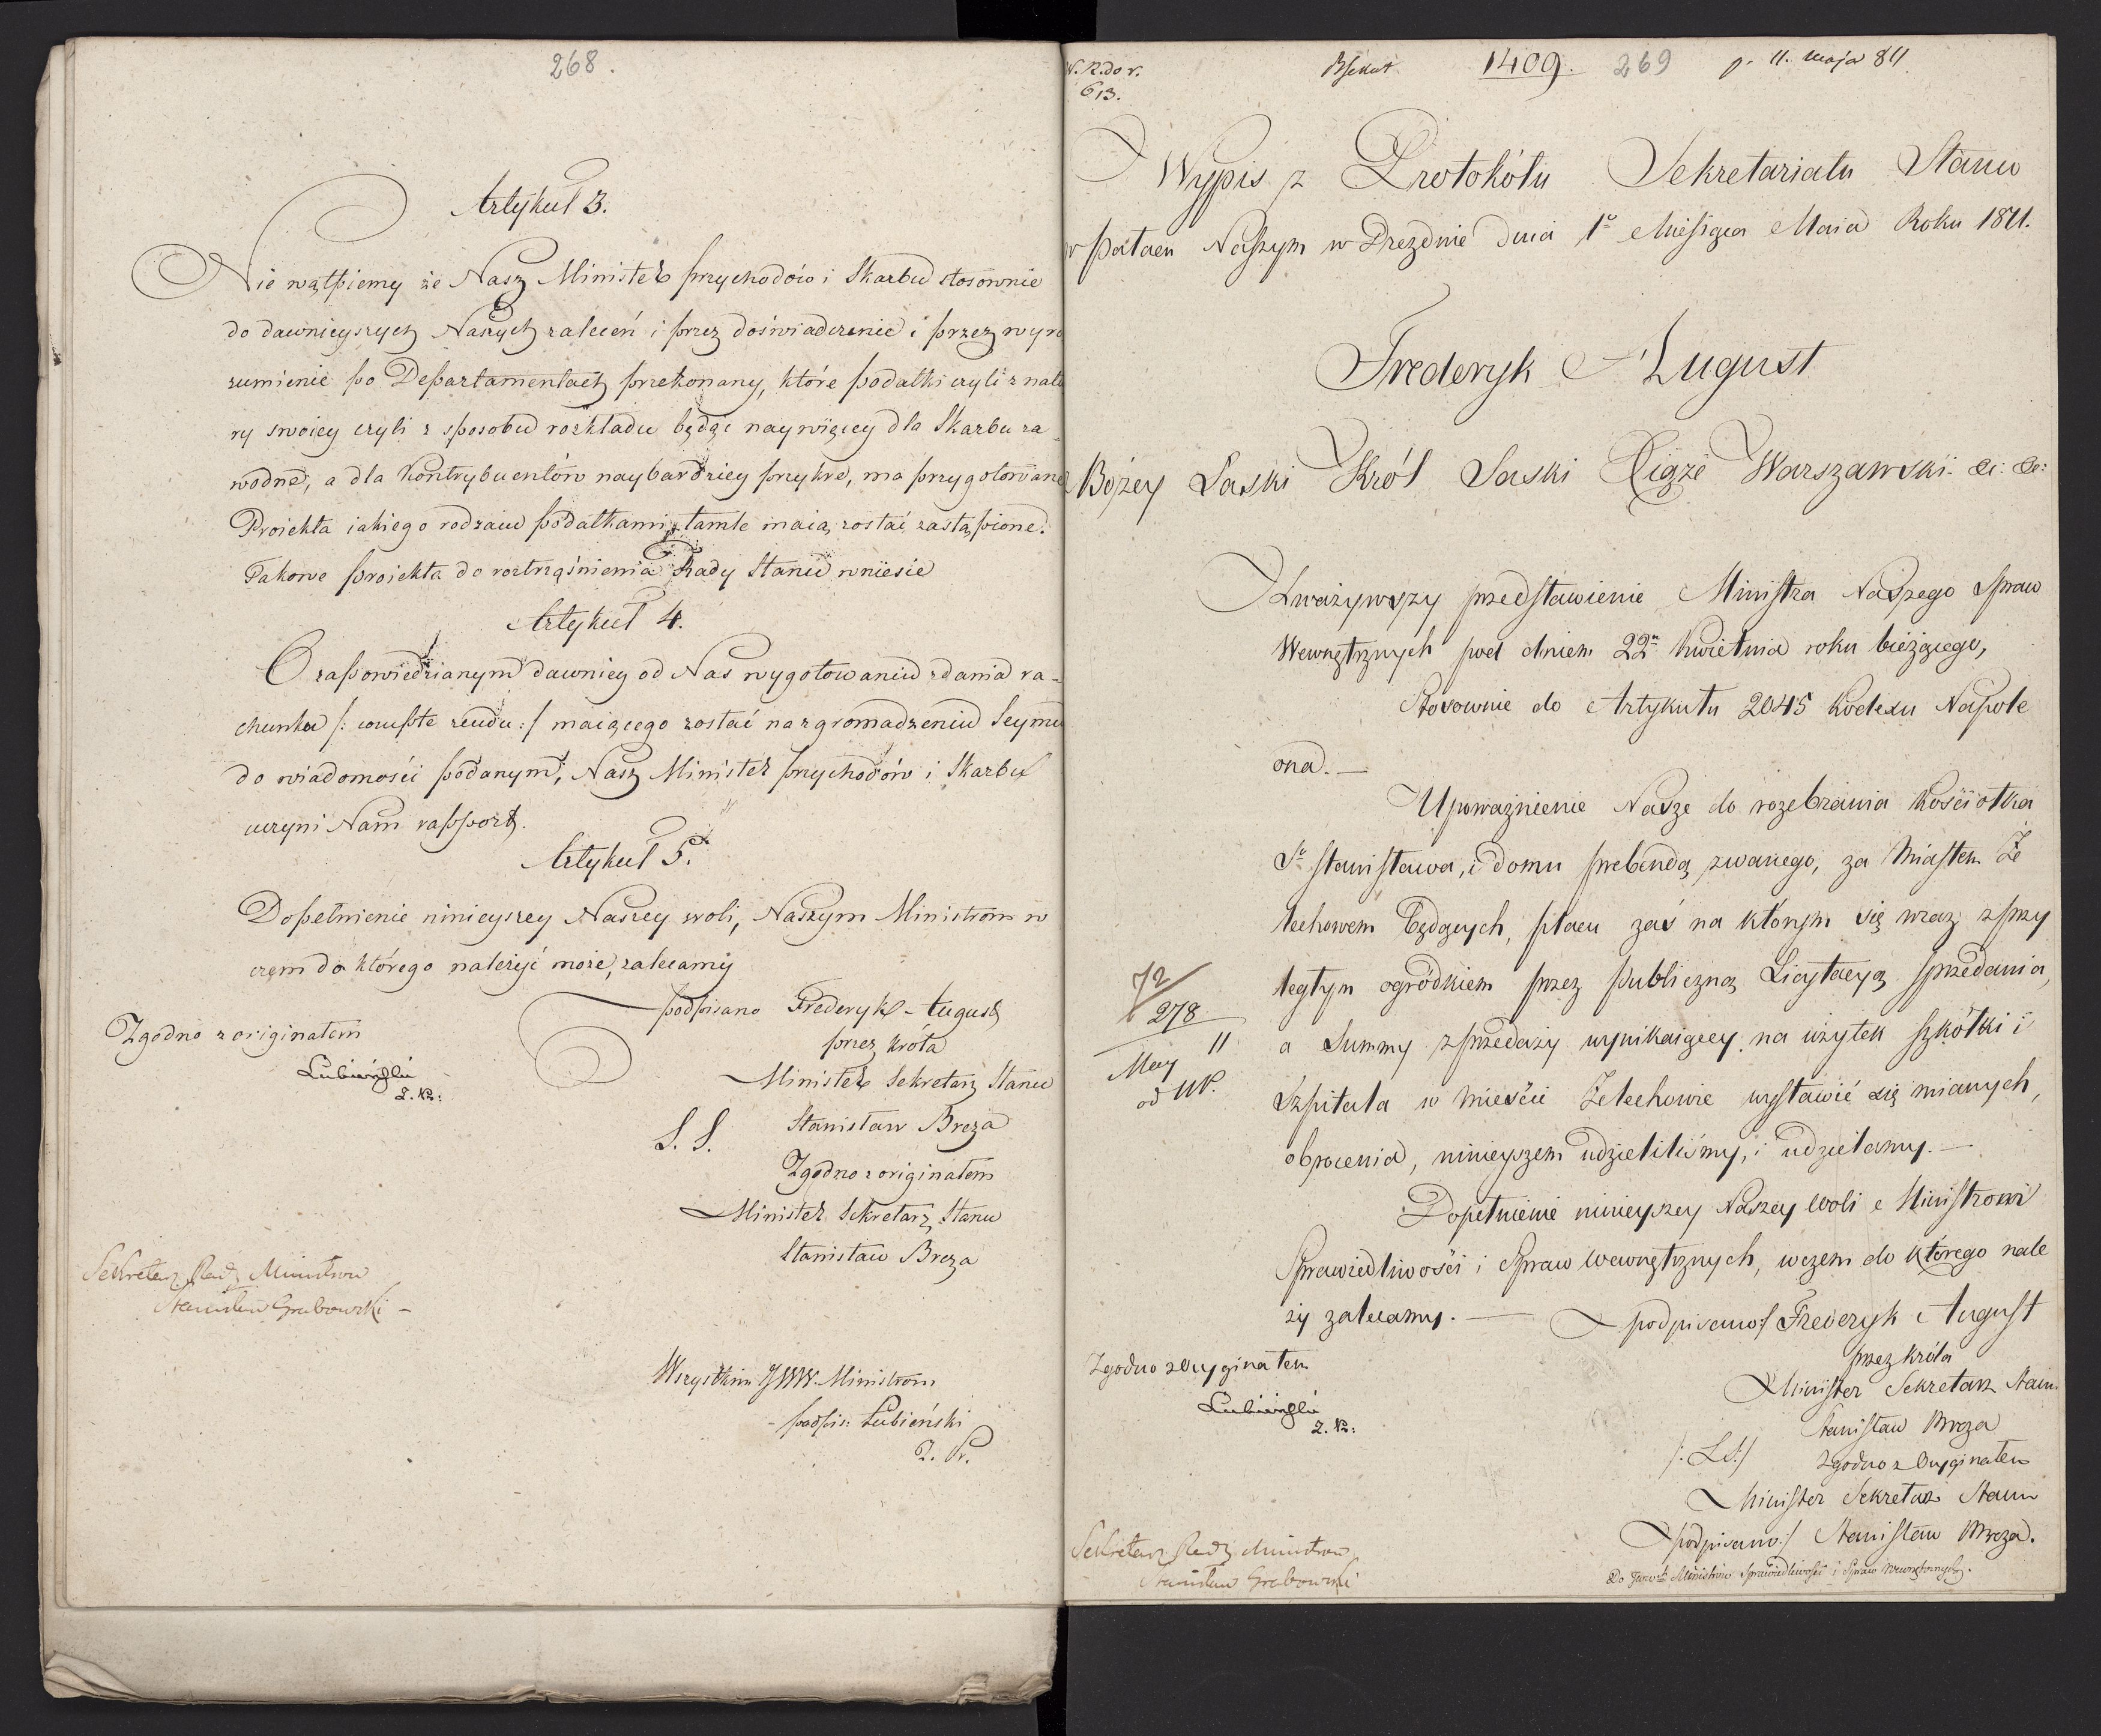 268.
Artykuł 3.
Nie wątpiemy że Nasz Minister przychodów i Skarbu stosownie
do dawnieyszych Naszych zaleceń i przez doświadczenie i przez wyro
zumienie po Departamentach przekonany, które podatki czyli z natu
ry swoiey czyli z sposobu rozkładu będąc naywięcey dla Skarbu za-
wodne, a dla Kontrybuentów naybardziey przykre, ma przygotowane
Proiekta iakiego rodzaiu podatkami tamte maią zostać zastąpione.
Takowe proiekta do roztrząśnienia Rady Stanu wniesie
Artykuł 4.
O zapowiedzianym dawniey od Nas wygotowaniu zdania ra-
chunku /: compte rendu :/ maiącego zostać na zgromadzeniu Seymu
do wiadomości podanym, Nasz Minister przychodów i Skarbu
uczyni Nam rapport.
Artykuł 5.
Dopełnienie ninieyszey Naszey woli, Naszym Ministrom w
czem do którego należyć może, zalecamy
podpisano Frederyk August
przez króla
Minister Sekretarz Stanu
Stanisław Breza
L. S.
Zgodno z originałem
Minister Sekretarz Stanu
Stanisław Breza
Zgodno z originałem
Lubieński
Sekretarz Rady Ministrów
Stanisław Grabowski -
Wszystkim JWW. Ministrom
- podpis: Łubieński
1409. 269 p. 11. maja 811
613.
Wypis z Protokółu Sekretariatu Stanu
w Pałacu Naszym w Dreznie dnia 1o Miesiąca Maia Roku 1811.
Frederyk August
z Bożey Łaski Król Saski Xiąże Warszawski &c: &c:
Zważywszy przedstawienie Ministra Naszego Spraw
Wewnętrznych pod dniem 22n Kwietnia roku bieżącego,
Stosownie do Artykułu 2045 Kodexu Napole
ona. —
Upoważnienie Nasze do rozebrania Kościołka
So Stanisława, i domu prebendą zwanego, za Miastem Że
lechowem będących, placu zaś na którym się wraz z przy
ległym ogródkiem przez publiczną Licytacyą sprzedania,
a Summy z przedaży wynikaiącey na użytek szkółki i
Szpitala w mieście Żelechowie wystawić się mianych,
obrócenia, ninieyszem udzieliliśmy, i udzielamy. —
Dopełnienie ninieyszey Naszey woli Ministrowi
Sprawiedliwości i Spraw Wewnętrznych, w czem do którego nale
ży zalecamy. — podpisano:/ Frederyk August
przez króla
Minister Sekretarz Stanu
Stanisław Breza
/: LS:/ Zgodno z Oryginałem
Minister Sekretarz Stanu
/podpisano:/ Stanisław Breza.
Do Ministrów Sprawiedliwości i Spraw Wewnętrznych.
72
278
11
Zgodno z Oryginałem
Lubieński
Sekretarz Rady Ministrów
Stanisław Grabowski